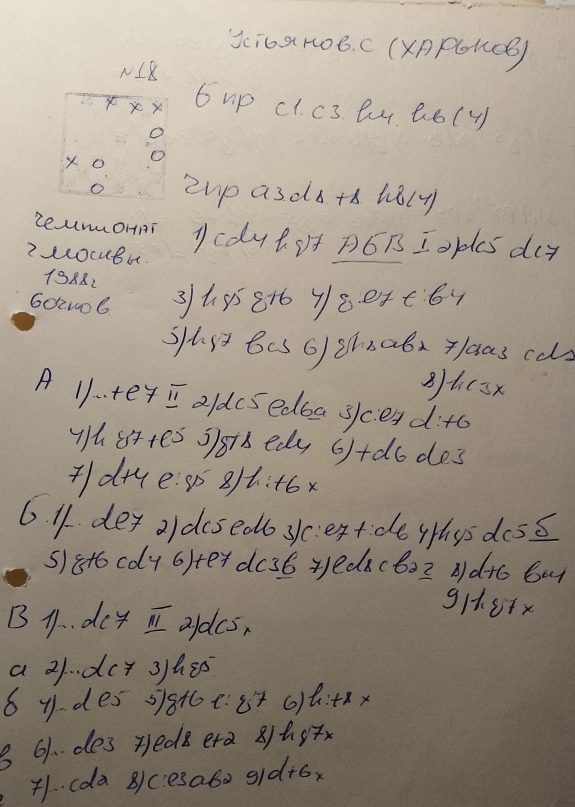 Устьянов.С (ХАРЬКОВ)
№18
б пр c1.c3.h4.h6(4)
ч пр a3d8 f8 h8(4)
чемпионат
г Москвы.
1988г
6 очков
1) cd4 hg7 АБВ I 2) dc5 dc7
3) hg5 gf6 4) g:e7 f:b4
5) hg7 bc3 6) gh8 ab2 7) aa3 cd2
8) hc3x
А 1)... fe7 II 2) dc5 ed6 а 3) c:e7 d:f6
4) hg7 fe5 5) gf8 ed4 6) fd6 de3
7) df4 e:g5 8) h:f6x
Б. 1)... de7 2) dc5 ed6 3) c:e7 f:d6 4) hg5 dc5 б
5) gf6 cd4 6) fe7 dc3 в 7) ed8 cb2 г 8) df6 ba1
9) hg7x
В 1)... dc7 III 2) dc5x
а 2)... dc7 3) hg5
б 4)... de5 5) gf6 e:g7 6) h:f8x
в 6)... de3 7) ed8 ef2 8) hg7x
7)... cd2 8) c:e3 ab2 9) d:f6x